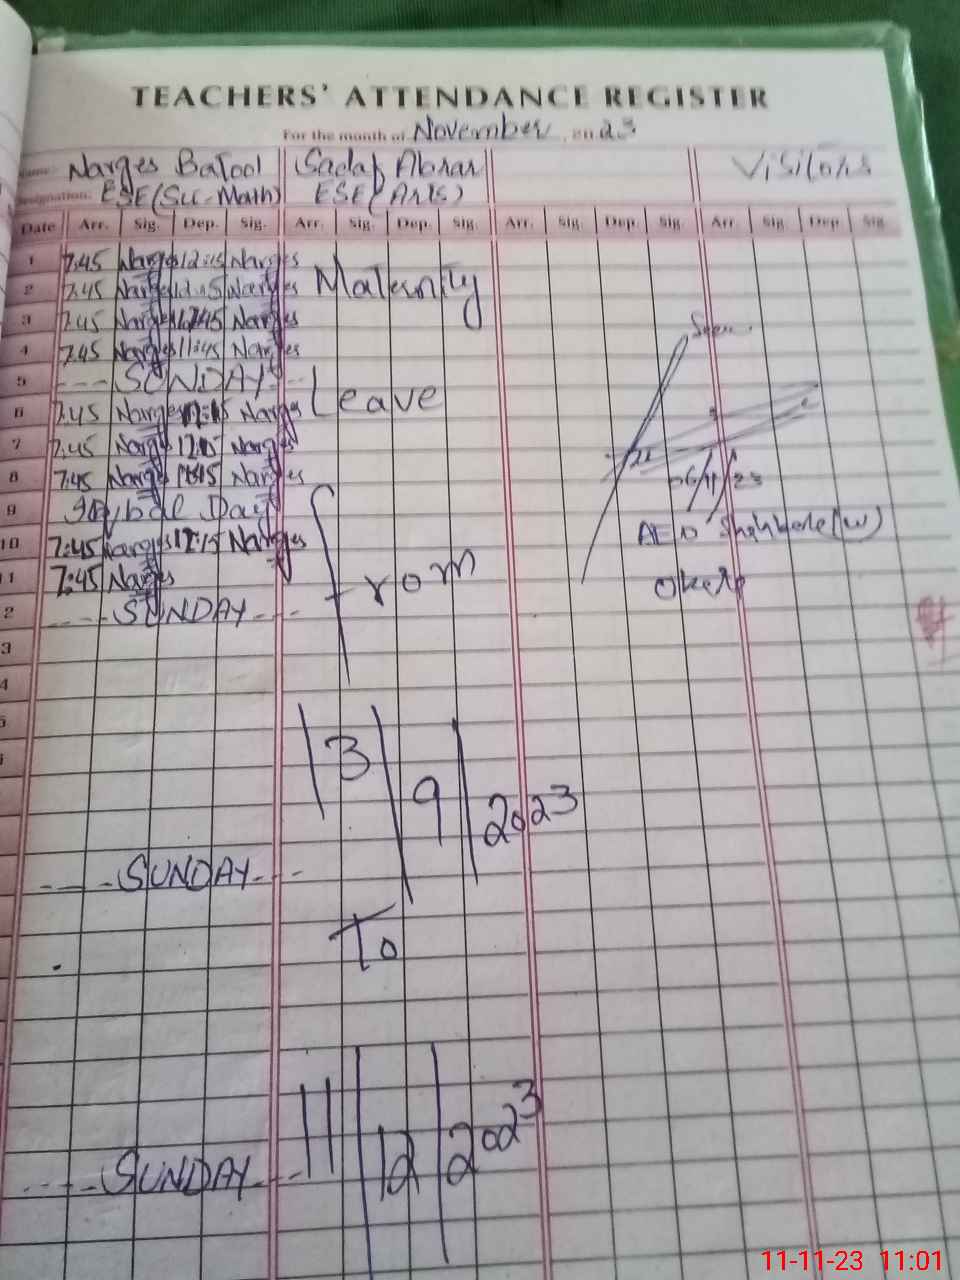 TEACHERS' ATTENDANCE REGISTER
For the month of November, 2023
Name: Narges Batool Sadaf Abrar Visitors
Designation: ESE (Sci-Math) ESE (Arts)
Date Arr. Sig. Dep. Sig. Arr. Sig. Dep. Sig. Arr. Sig. Dep. Sig. Arr. Sig. Dep. Sig.
1 7:45 Narges 12:15 Narges
2 7:45 Narges Narges Maternity
3 7:45 Narges Narges
4 7:45 Narges 11:45 Narges Seen
5 ---- SUNDAY ---
6 7:45 Narges Narges Leave
7 7:45 Narges Narges
8 7:45 Narges Narges 06/11/23
9 Iqbal Day
AEO (W)
10 7:45 Narges 12:15 Narges
11 7:45 Narges From
2 ---- SUNDAY ---
3
4
13/9/2023
---- SUNDAY ---
To
11/12/2023
---- SUNDAY ---
11-11-23 11:01